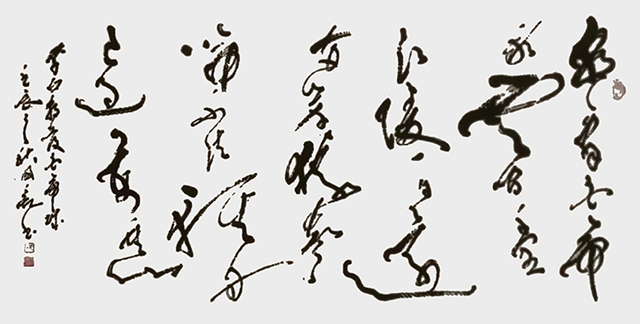 朝辞白帝
彩云间千里
江陵一日还
两岸猿声
啼不住轻舟
已过万重山
李白早发白帝城